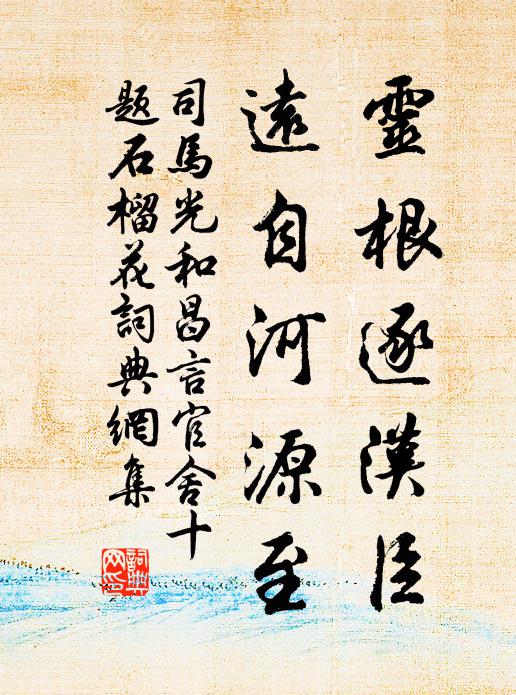 靈根逐漢臣
遠自河源至
司馬光和昌言官舍十
题石榴花詞典網集
詞典
网印